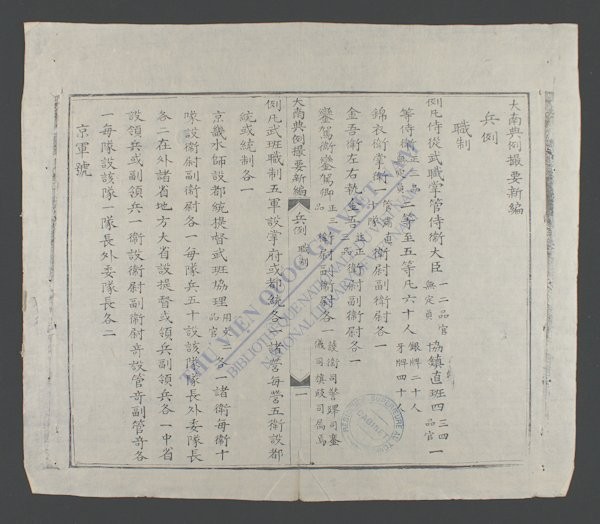 大南典例撮要新編
兵例
職制
例凡侍從武職掌管侍衛大臣一二品官無定員協鎮直班四三四一品官
等侍衛正三品無定員二等至五等凡六十人銀牌二十人牙牌四十人
錦衣衛掌衛一管肅直十隊衛尉副衛尉各一
金吾衛左右執金吾正二品衛尉副衛尉各一
鑾駕衛鑾駕卿正三品衛尉副衛尉各一
大南典例撮要新編 兵例 職制 一
例凡武班職制五軍設掌府或都統各一諸營每營五衛設都
統或統制各一
京畿水師設都統提督武班協理用文三品官各一諸衛每衛十
隊設衛尉副衛尉各一每隊兵五十設該隊隊長外委隊長
各二在外諸省地方大省設提督或領兵副領兵各一中省
設領兵或副領兵一衛設衛尉副衛尉奇設管奇副管奇各
一每隊設該隊一隊長外委隊長各二
京軍號
THƯ VIỆN QUỐC GIA VIỆT NAM
BIBLIOTHEQUE NATIONALE DU VIETNAM
NATIONAL LIBRARY OF VIETNAM